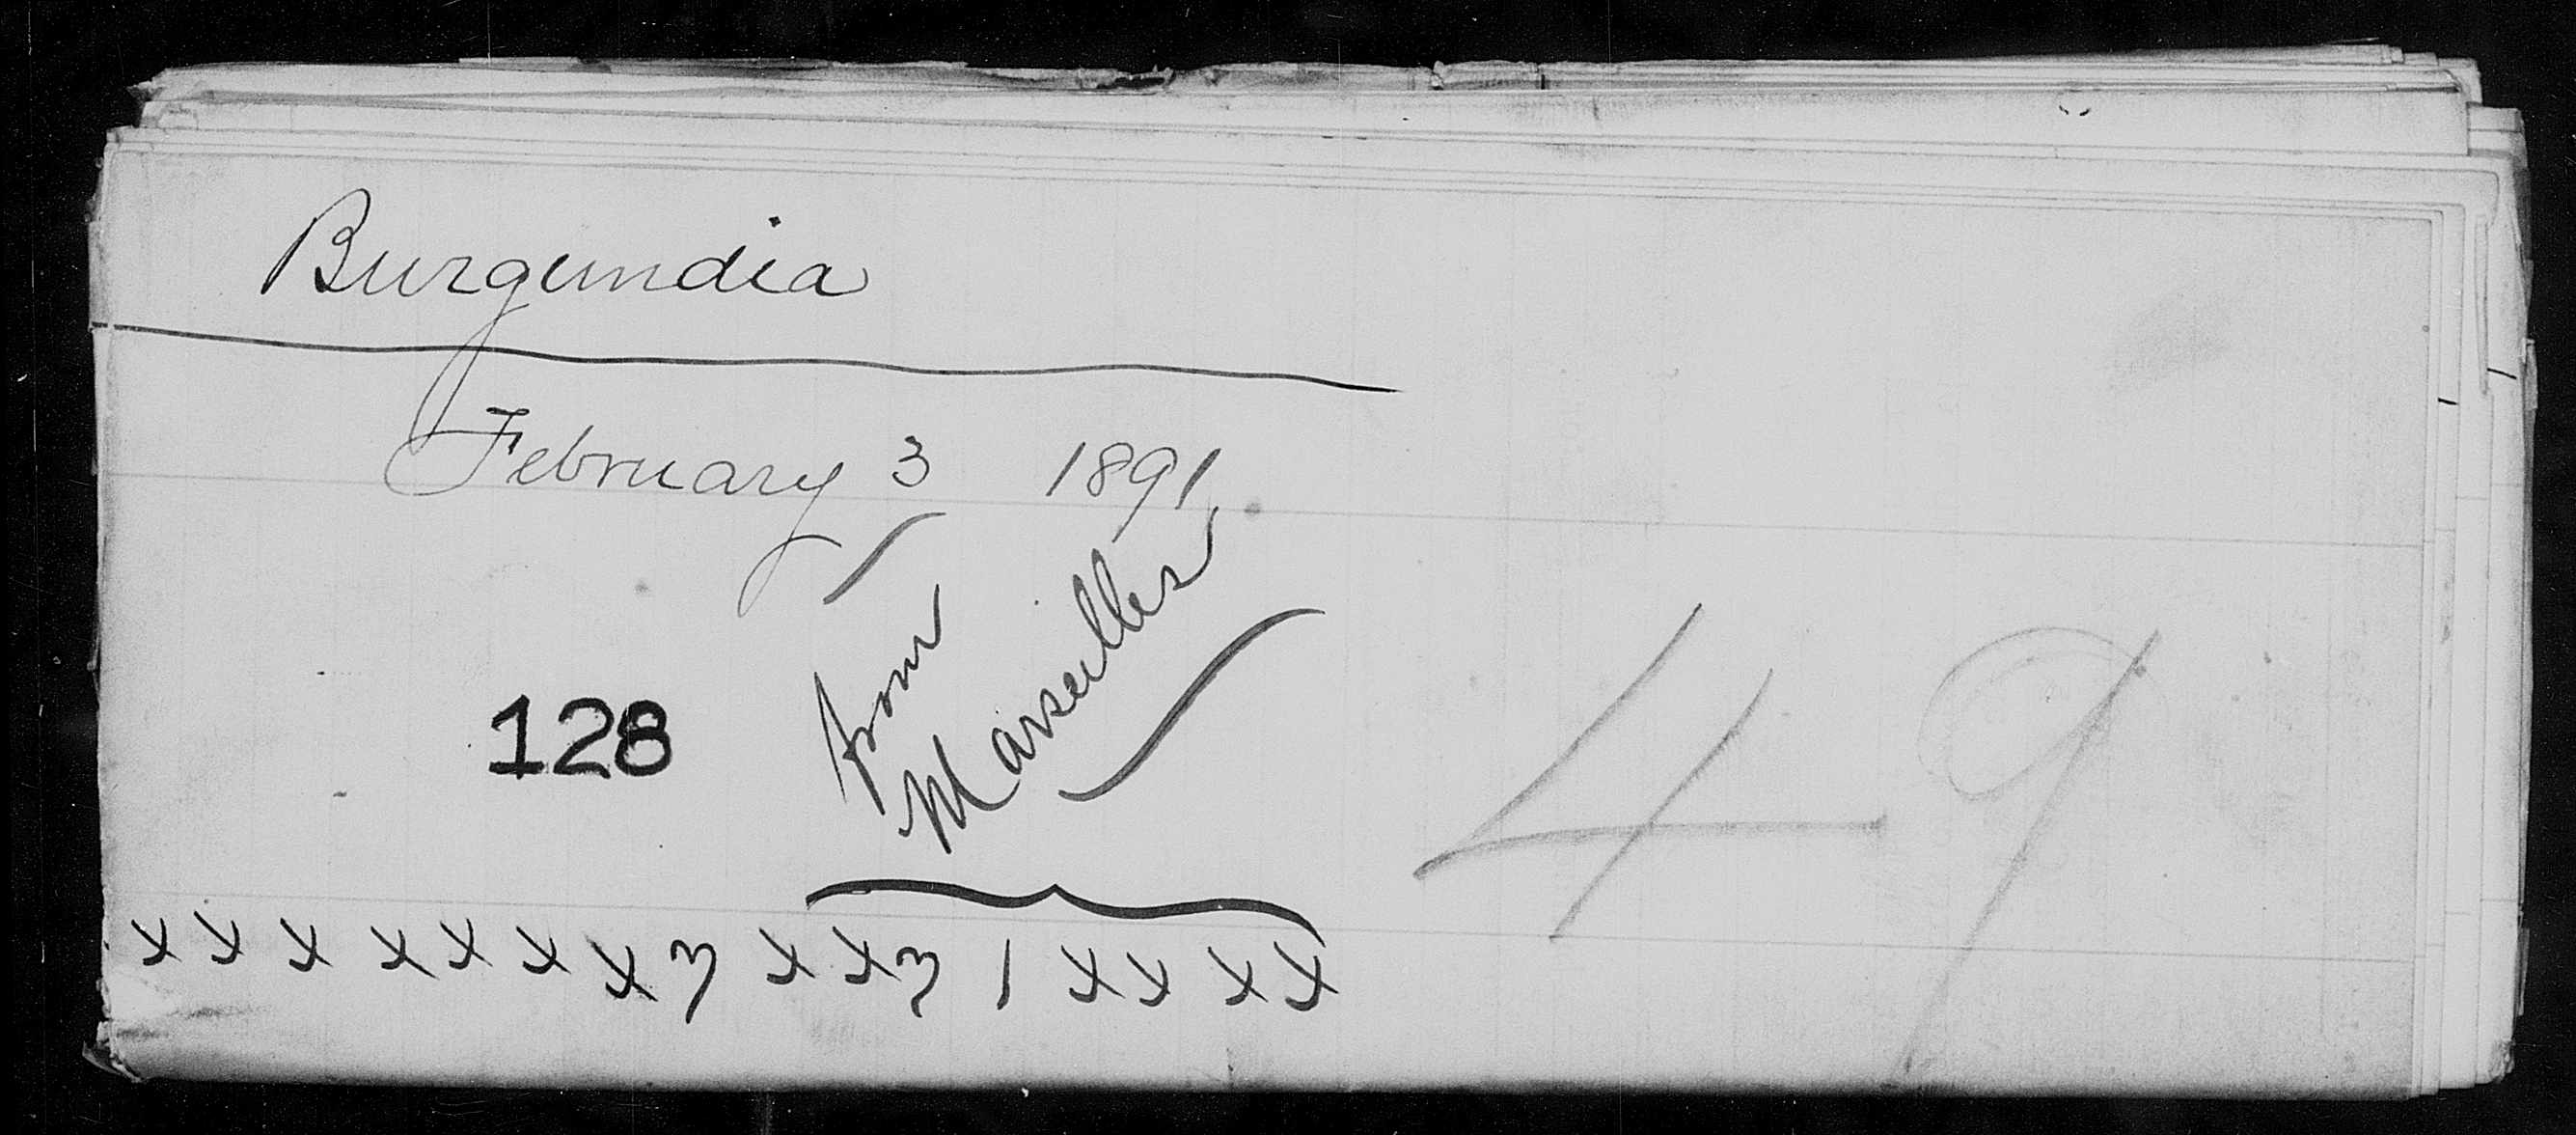 Burgundia
February 3 1891
from
Marseilles
128
49
x x x x x x x 3 x x 3 1 x x x x